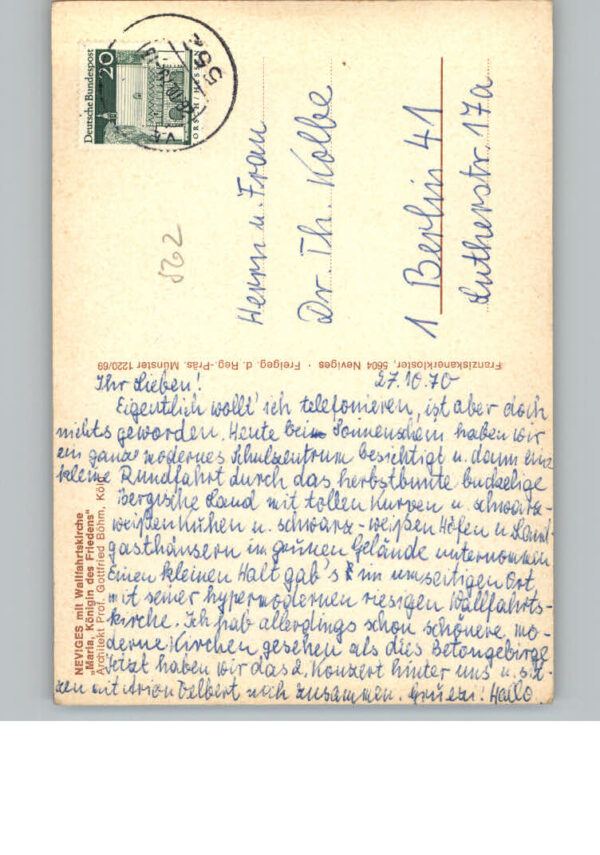 Deutsche Bundespost
20
LORSCH/HESSEN
55
562
Herrn u. Frau
Dr. Th. Kolbe
1 Berlin 41
Lutherstr. 17a
Franziskanerkloster, 5604 Neviges · Freigeg. d. Reg.-Präs. Münster 1220/69
NEVIGES mit Wallfahrtskirche
„Maria, Königin des Friedens"
Architekt Prof. Gottfried Böhm, Köln
Ihr Lieben! 27.10.70
Eigentlich wollt' ich telefonieren, ist aber doch
nichts geworden. Heute beim Sonnenschein haben wir
ein ganz modernes Schulzentrum besichtigt u. dann eine
kleine Rundfahrt durch das herbstbunte buckelige
Bergische Land mit tollen Kurven u. schwarz-
weißen Kühen u. schwarz-weißen Höfen u. Land-
gasthäusern im grünen Gelände unternommen
Einen kleinen Halt gab's im umseitigen Ort
mit seiner hypermodernen riesigen Wallfahrts-
kirche. Ich hab allerdings schon schönere mo-
derne Kirchen gesehen als dies Betongebirge
Jetzt haben wir das 2. Konzert hinter uns u. sit-
zen mit noch zusammen. Gruezi!